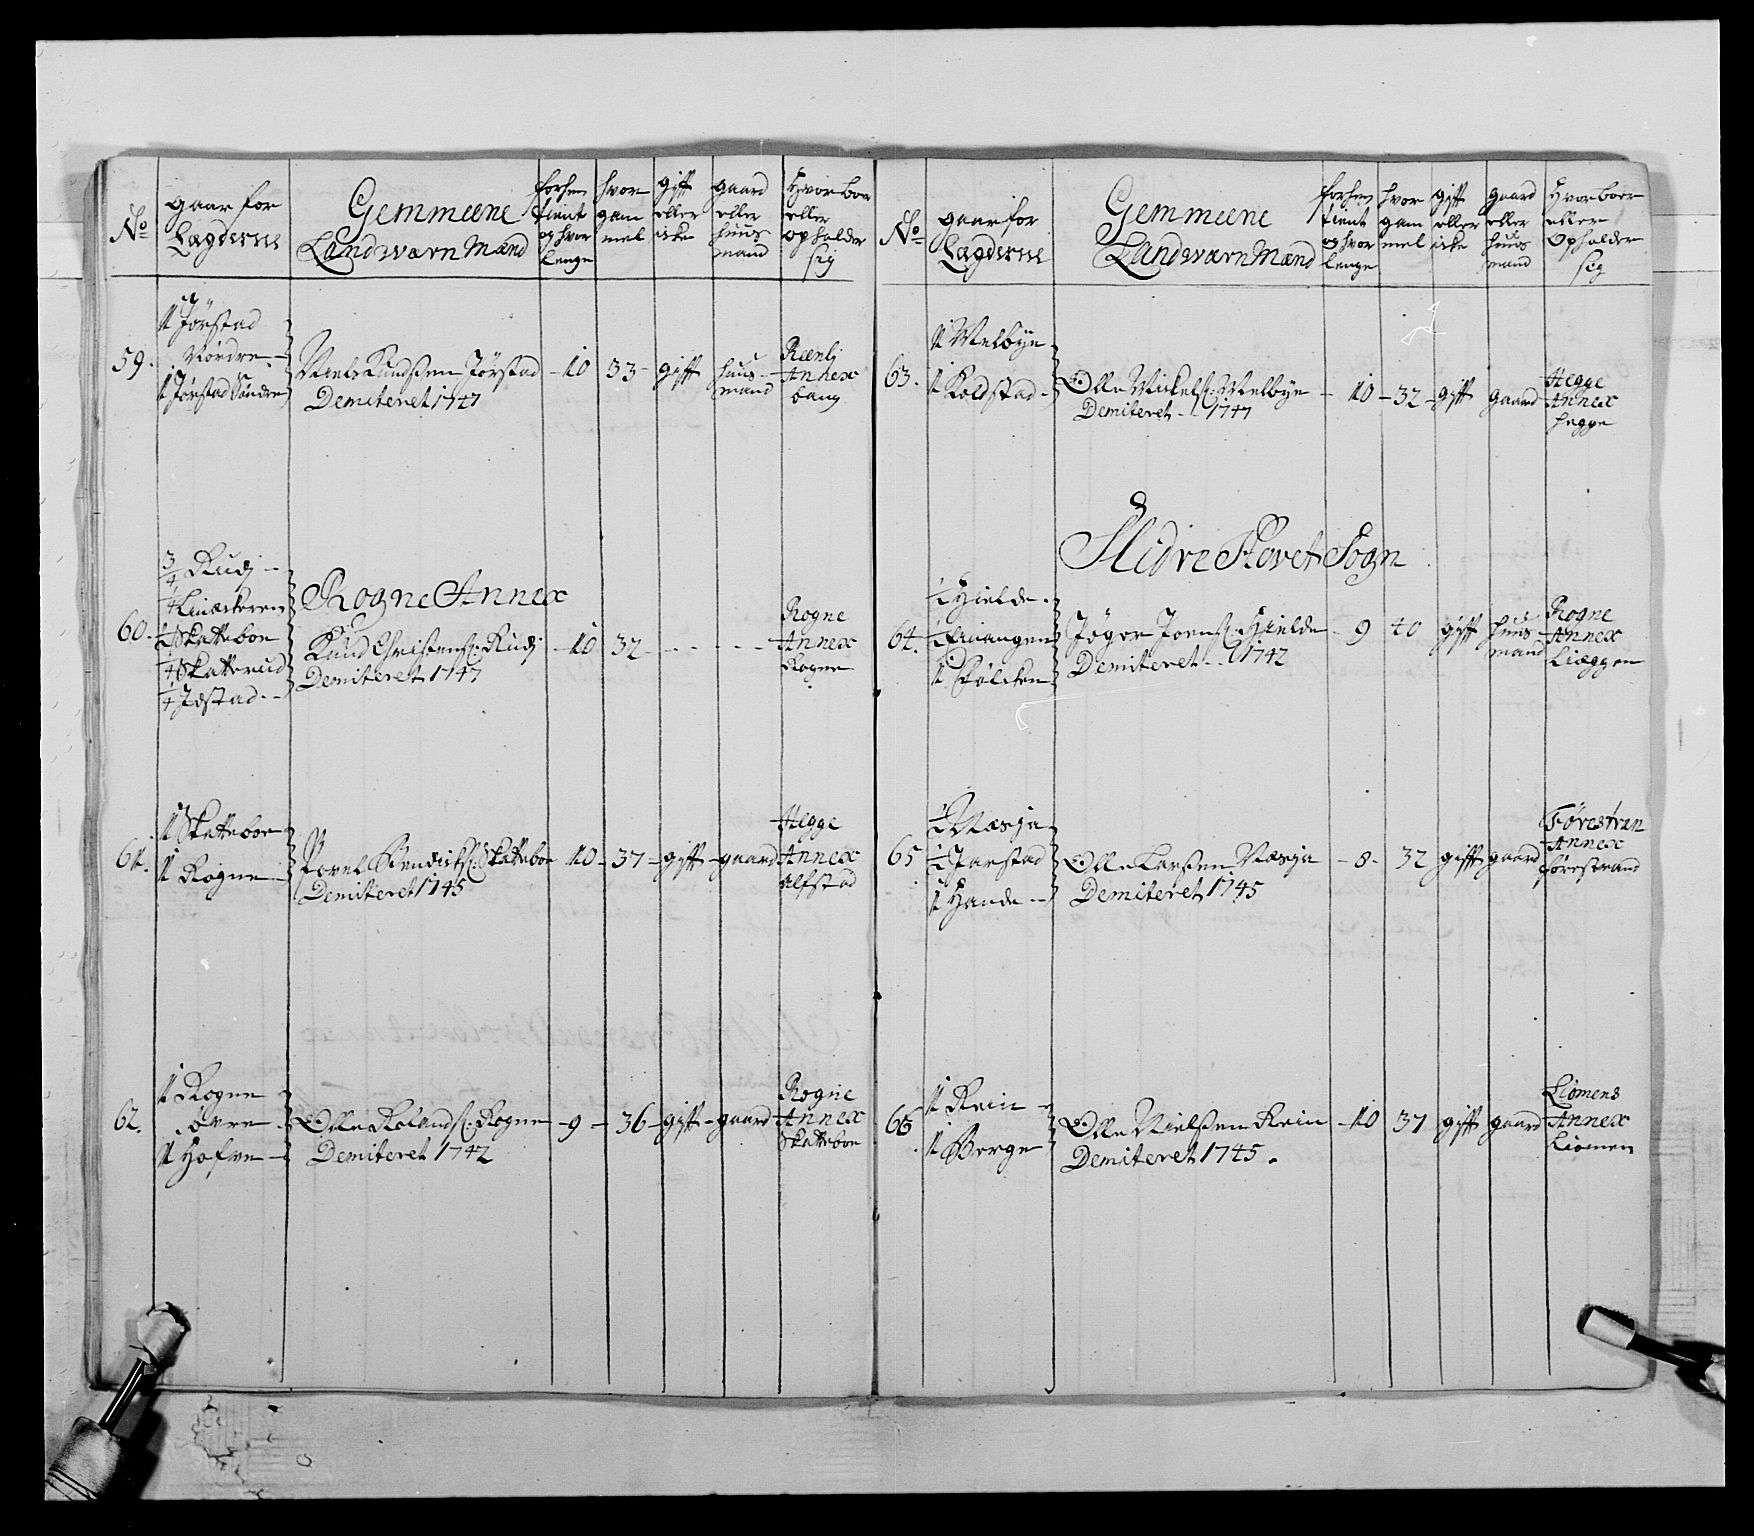 No
gaar for
Lægderne
Gemmeene
Landwærn Mænd
forhen
tient
og hvor
lenge
hvor
gam
mel
gift
eller
icke
gaard
eller
huus
mand
Hvor boer
eller
opholder
sig
59.
1 Jørstad
Nordre
1 Jørstad Søndre
Niels Knudssen Jørstad
Demiteret 1747
10
33
gift
huus
mand
Reenli
Annex
bang
Rogne Annex
60.
3/4 Rudj
1/4
1/2 Skatteboe
1/4 Skatterud
1/4 Jostad
Knud Christens: Rudj
Demiteret 1747
10
32
Rogne
Annex
Rogne
61.
1 Skatteboe
1 Rogne
Povel Skatteboe
Demiteret 1745
10
37
gift
gaard
Hegge
Annex
Alfstad
62.
1 Rogne
øvre
1 Hofve
Olle Rolands: Rogne
Demiteret 1742
9
36
gift
gaard
Rogne
Annex
Skatteboe
No
gaar for
Lægderne
Gemmeene
Landwærn Mænd
forhen
tient
og hvor
lenge
hvor
gam
mel
gift
eller
icke
gaard
eller
huus
mand
Hvor boer
eller
Opholder
sig
63.
1 Melbye
1 Koldstad
Olle Mickels: Melbye
Demiteret 1747
10
32
gift
gaard
Hegge
Annex
hegge
Slidre Hovet Sogn
64.
1/2 Hielde
1/2
1 Følcken
Jøger Joens: Hielde
Demiteret 1742
9
40
gift
huus
mand
Rogne
Annex
Liæggen
65
1/2 Næsja
1/2 Jarstad
1 Hande
Olle Larssen Næsja
Demiteret 1745
8
32
gift
gaard
Førestran
Annex
førestrand
66
1 Rein
1 Berge
Olle Nielssen Rein
Demiteret 1745
10
37
gift
gaard
Liomens
Annex
Liomen